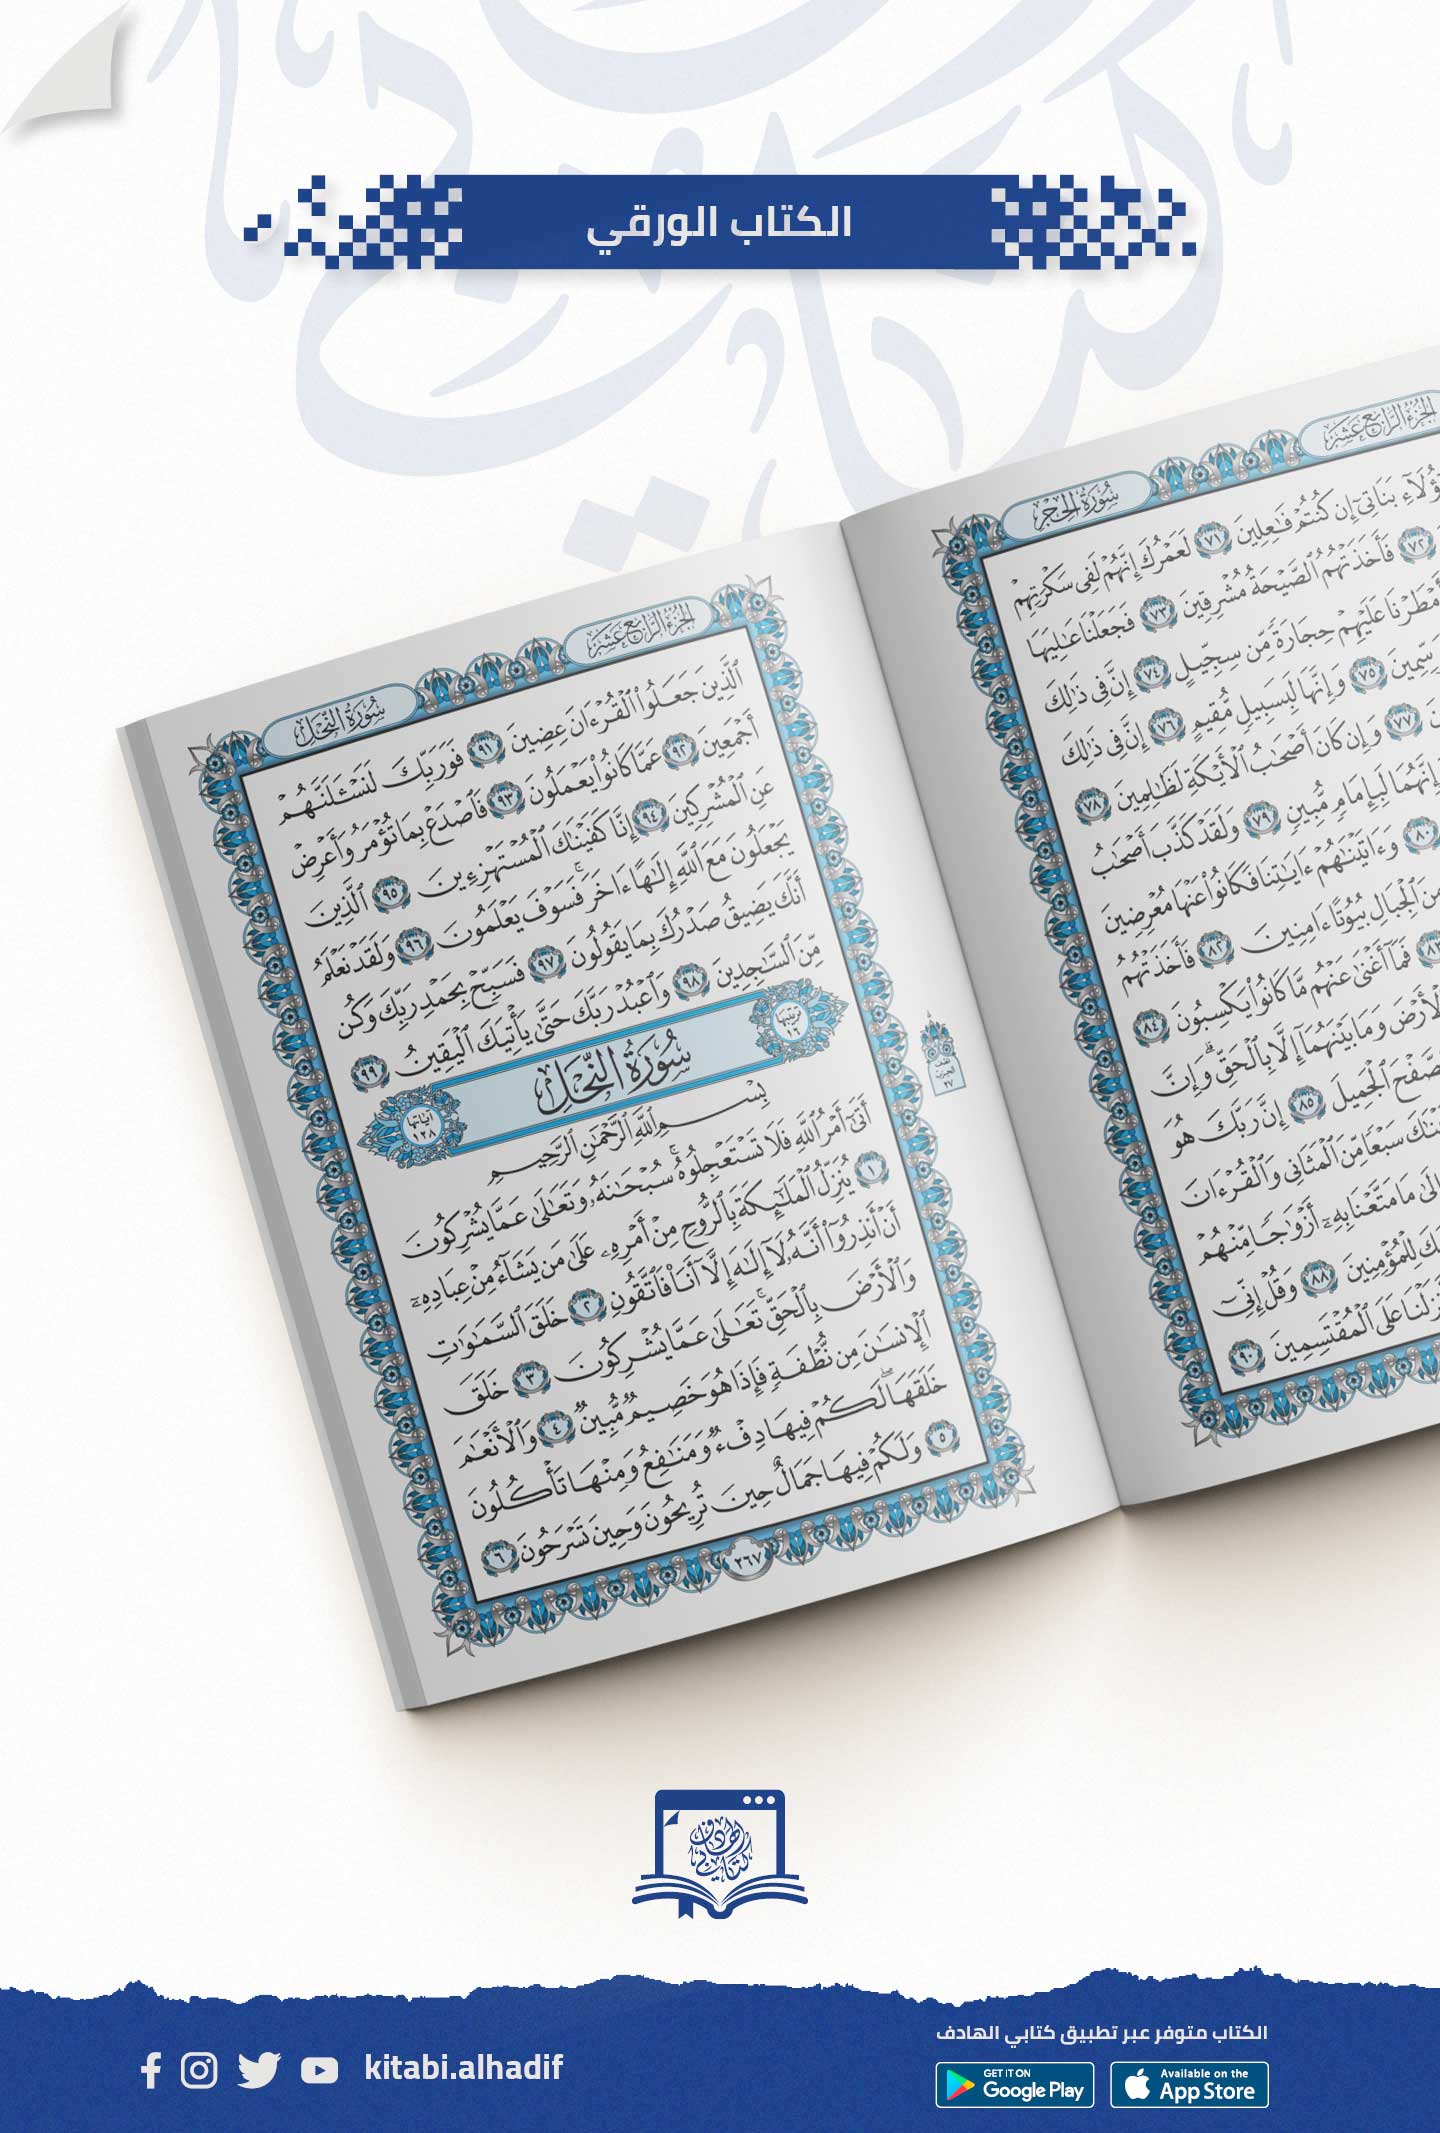 الكتاب الورقي
الجزء الرابع عشر
سورة الحجر
ؤُلَاءِ بَنَاتِىٓ إِن كُنتُمْ فَٰعِلِينَ ٧١ لَعَمْرُكَ إِنَّهُمْ لَفِى سَكْرَتِهِمْ
٧٢ فَأَخَذَتْهُمُ ٱلصَّيْحَةُ مُشْرِقِينَ ٧٣ فَجَعَلْنَا عَٰلِيَهَا
أَمْطَرْنَا عَلَيْهِمْ حِجَارَةً مِّن سِجِّيلٍ ٧٤ إِنَّ فِى ذَٰلِكَ
سِّمِينَ ٧٥ وَإِنَّهَا لَبِسَبِيلٍ مُّقِيمٍ ٧٦ إِنَّ فِى ذَٰلِكَ
٧٧ وَإِن كَانَ أَصْحَٰبُ ٱلْأَيْكَةِ لَظَٰلِمِينَ ٧٨
إِنَّهُمَا لَبِإِمَامٍ مُّبِينٍ ٧٩ وَلَقَدْ كَذَّبَ أَصْحَٰبُ
٨٠ وَءَاتَيْنَٰهُمْ ءَايَٰتِنَا فَكَانُوا۟ عَنْهَا مُعْرِضِينَ
مِنَ ٱلْجِبَالِ بُيُوتًا ءَامِنِينَ ٨٢ فَأَخَذَتْهُمُ
٨٣ فَمَآ أَغْنَىٰ عَنْهُم مَّا كَانُوا۟ يَكْسِبُونَ ٨٤
لْأَرْضَ وَمَا بَيْنَهُمَآ إِلَّا بِٱلْحَقِّ ۗ وَإِنَّ
صَّفْحَ ٱلْجَمِيلَ ٨٥ إِنَّ رَبَّكَ هُوَ
يْنَٰكَ سَبْعًا مِّنَ ٱلْمَثَانِى وَٱلْقُرْءَانَ
إِلَىٰ مَا مَتَّعْنَا بِهِۦٓ أَزْوَٰجًا مِّنْهُمْ
كَ لِلْمُؤْمِنِينَ ٨٨ وَقُلْ إِنِّىٓ
نزَلْنَا عَلَى ٱلْمُقْتَسِمِينَ ٩٠
الجزء الرابع عشر
سورة النحل
ٱلَّذِينَ جَعَلُوا۟ ٱلْقُرْءَانَ عِضِينَ ٩١ فَوَرَبِّكَ لَنَسْـَٔلَنَّهُمْ
أَجْمَعِينَ ٩٢ عَمَّا كَانُوا۟ يَعْمَلُونَ ٩٣ فَٱصْدَعْ بِمَا تُؤْمَرُ وَأَعْرِضْ
عَنِ ٱلْمُشْرِكِينَ ٩٤ إِنَّا كَفَيْنَٰكَ ٱلْمُسْتَهْزِءِينَ ٩٥ ٱلَّذِينَ
يَجْعَلُونَ مَعَ ٱللَّهِ إِلَٰهًا ءَاخَرَ ۚ فَسَوْفَ يَعْلَمُونَ ٩٦ وَلَقَدْ نَعْلَمُ
أَنَّكَ يَضِيقُ صَدْرُكَ بِمَا يَقُولُونَ ٩٧ فَسَبِّحْ بِحَمْدِ رَبِّكَ وَكُن
مِّنَ ٱلسَّٰجِدِينَ ٩٨ وَٱعْبُدْ رَبَّكَ حَتَّىٰ يَأْتِيَكَ ٱلْيَقِينُ ٩٩
ترتيبها ١٦
سورة النحل
آياتها ١٢٨
بِسْمِ ٱللَّهِ ٱلرَّحْمَٰنِ ٱلرَّحِيمِ
أَتَىٰٓ أَمْرُ ٱللَّهِ فَلَا تَسْتَعْجِلُوهُ ۚ سُبْحَٰنَهُۥ وَتَعَٰلَىٰ عَمَّا يُشْرِكُونَ
١ يُنَزِّلُ ٱلْمَلَٰٓئِكَةَ بِٱلرُّوحِ مِنْ أَمْرِهِۦ عَلَىٰ مَن يَشَآءُ مِنْ عِبَادِهِۦٓ
أَنْ أَنذِرُوٓا۟ أَنَّهُۥ لَآ إِلَٰهَ إِلَّآ أَنَا۠ فَٱتَّقُونِ ٢ خَلَقَ ٱلسَّمَٰوَٰتِ
وَٱلْأَرْضَ بِٱلْحَقِّ ۚ تَعَٰلَىٰ عَمَّا يُشْرِكُونَ ٣ خَلَقَ
ٱلْإِنسَٰنَ مِن نُّطْفَةٍ فَإِذَا هُوَ خَصِيمٌ مُّبِينٌ ٤ وَٱلْأَنْعَٰمَ
خَلَقَهَا ۗ لَكُمْ فِيهَا دِفْءٌ وَمَنَٰفِعُ وَمِنْهَا تَأْكُلُونَ
٥ وَلَكُمْ فِيهَا جَمَالٌ حِينَ تُرِيحُونَ وَحِينَ تَسْرَحُونَ ٦
٢٦٧
كتابي الهادف
الكتاب متوفر عبر تطبيق كتابي الهادف
GET IT ON Google Play
Available on the App Store
kitabi.alhadif